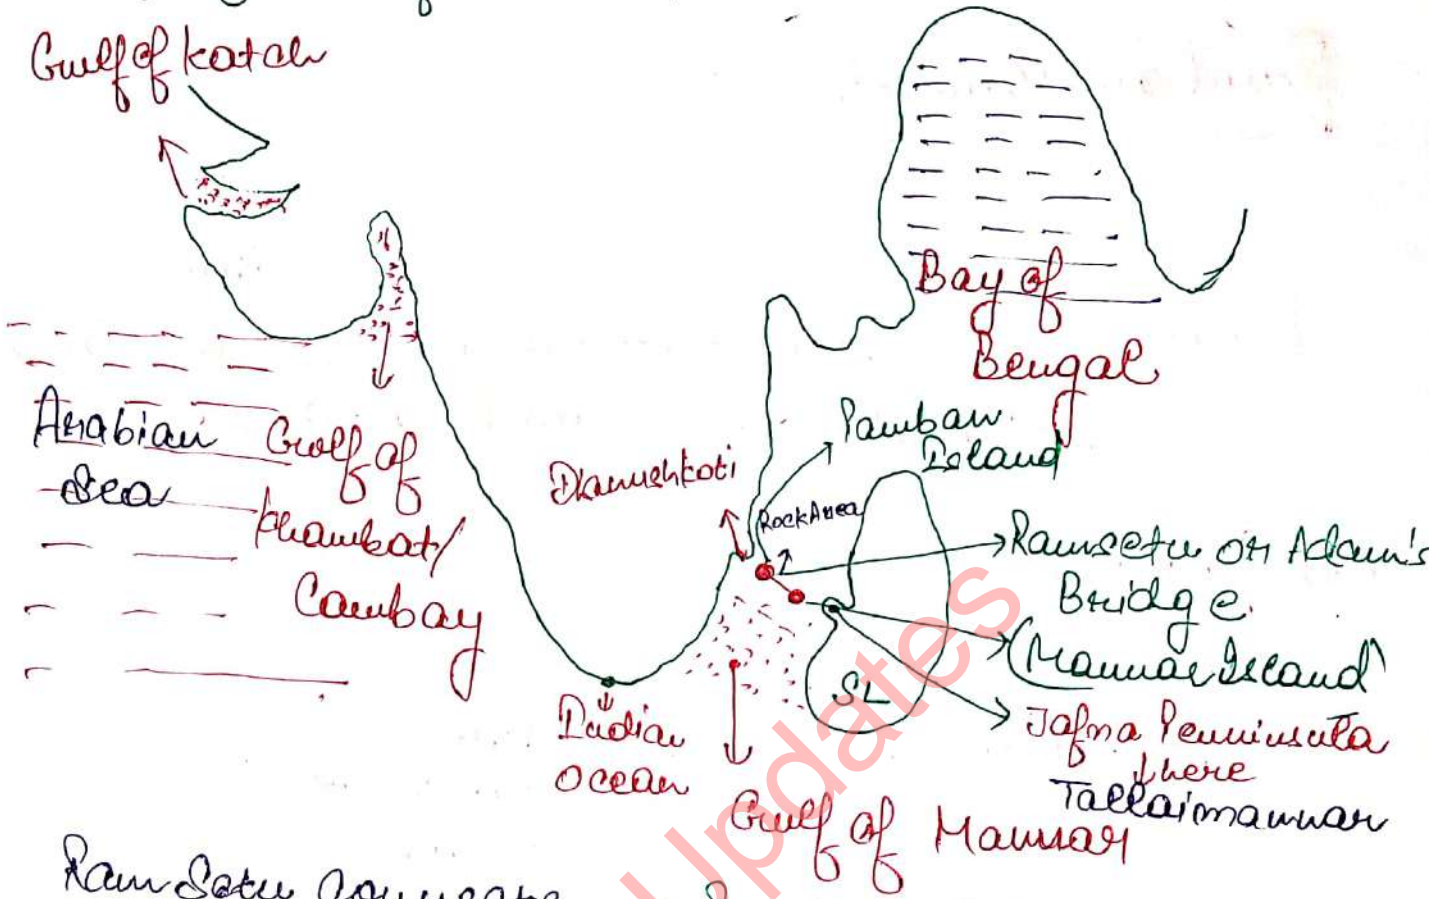 Gulf of Katch
Bay of
Bengal
Arabian
Sea
Gulf of
Khambat/
Cambay
Pamban
Island
Dhanushkoti
Rock Area
Ramsetu or Adam's
Bridge
(Mannar Island)
SL
Jafna Penninsula
here
Tallaimannar
Indian
Ocean
Gulf of Mannar
Updates
Ram Setu connects